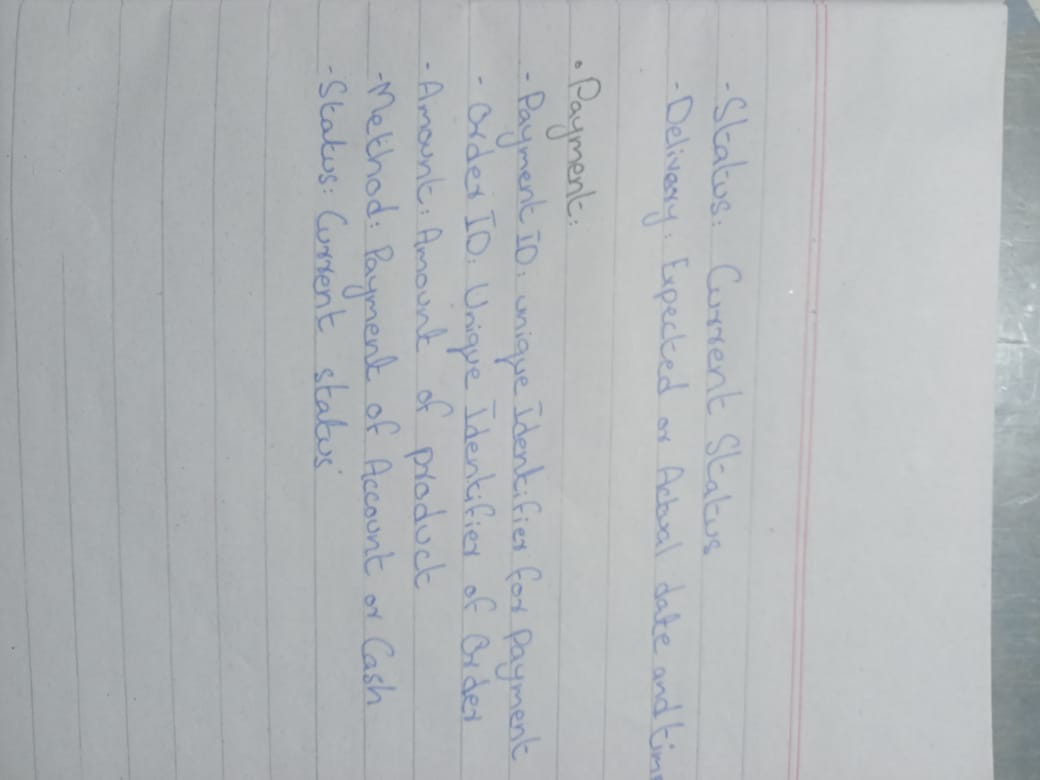 - Status: Current Status
- Delivery: Expected or Actual date and time
• Payment:
- Payment ID: unique Identifier for payment
- Order ID: Unique Identifier of Order
- Amount: Amount of product
- Method: Payment of Account or Cash
- Status: Current status